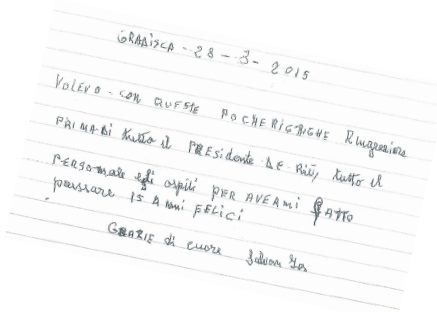 GRADISCA - 28 - 3 - 2015
VOLEVO - CON QUESTE POCHE RIGHIGHE RINgraziare
PRIMA DI tutto il PRESidente DE-Riù, tutto il
PERSOnale e gli ospiti PER AVERMI FATTO
passare 15 Anni FELICI
GRAZIE di cuore